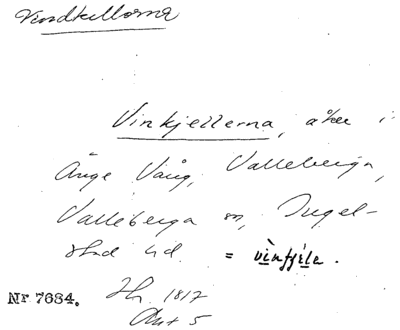 Vindkullorna
Vinkjellerna, åker i
Änge Vång, Valleberga,
Valleberga sn, Ingel-
stad hd. =
Nr 7684. 1817
Akt 5